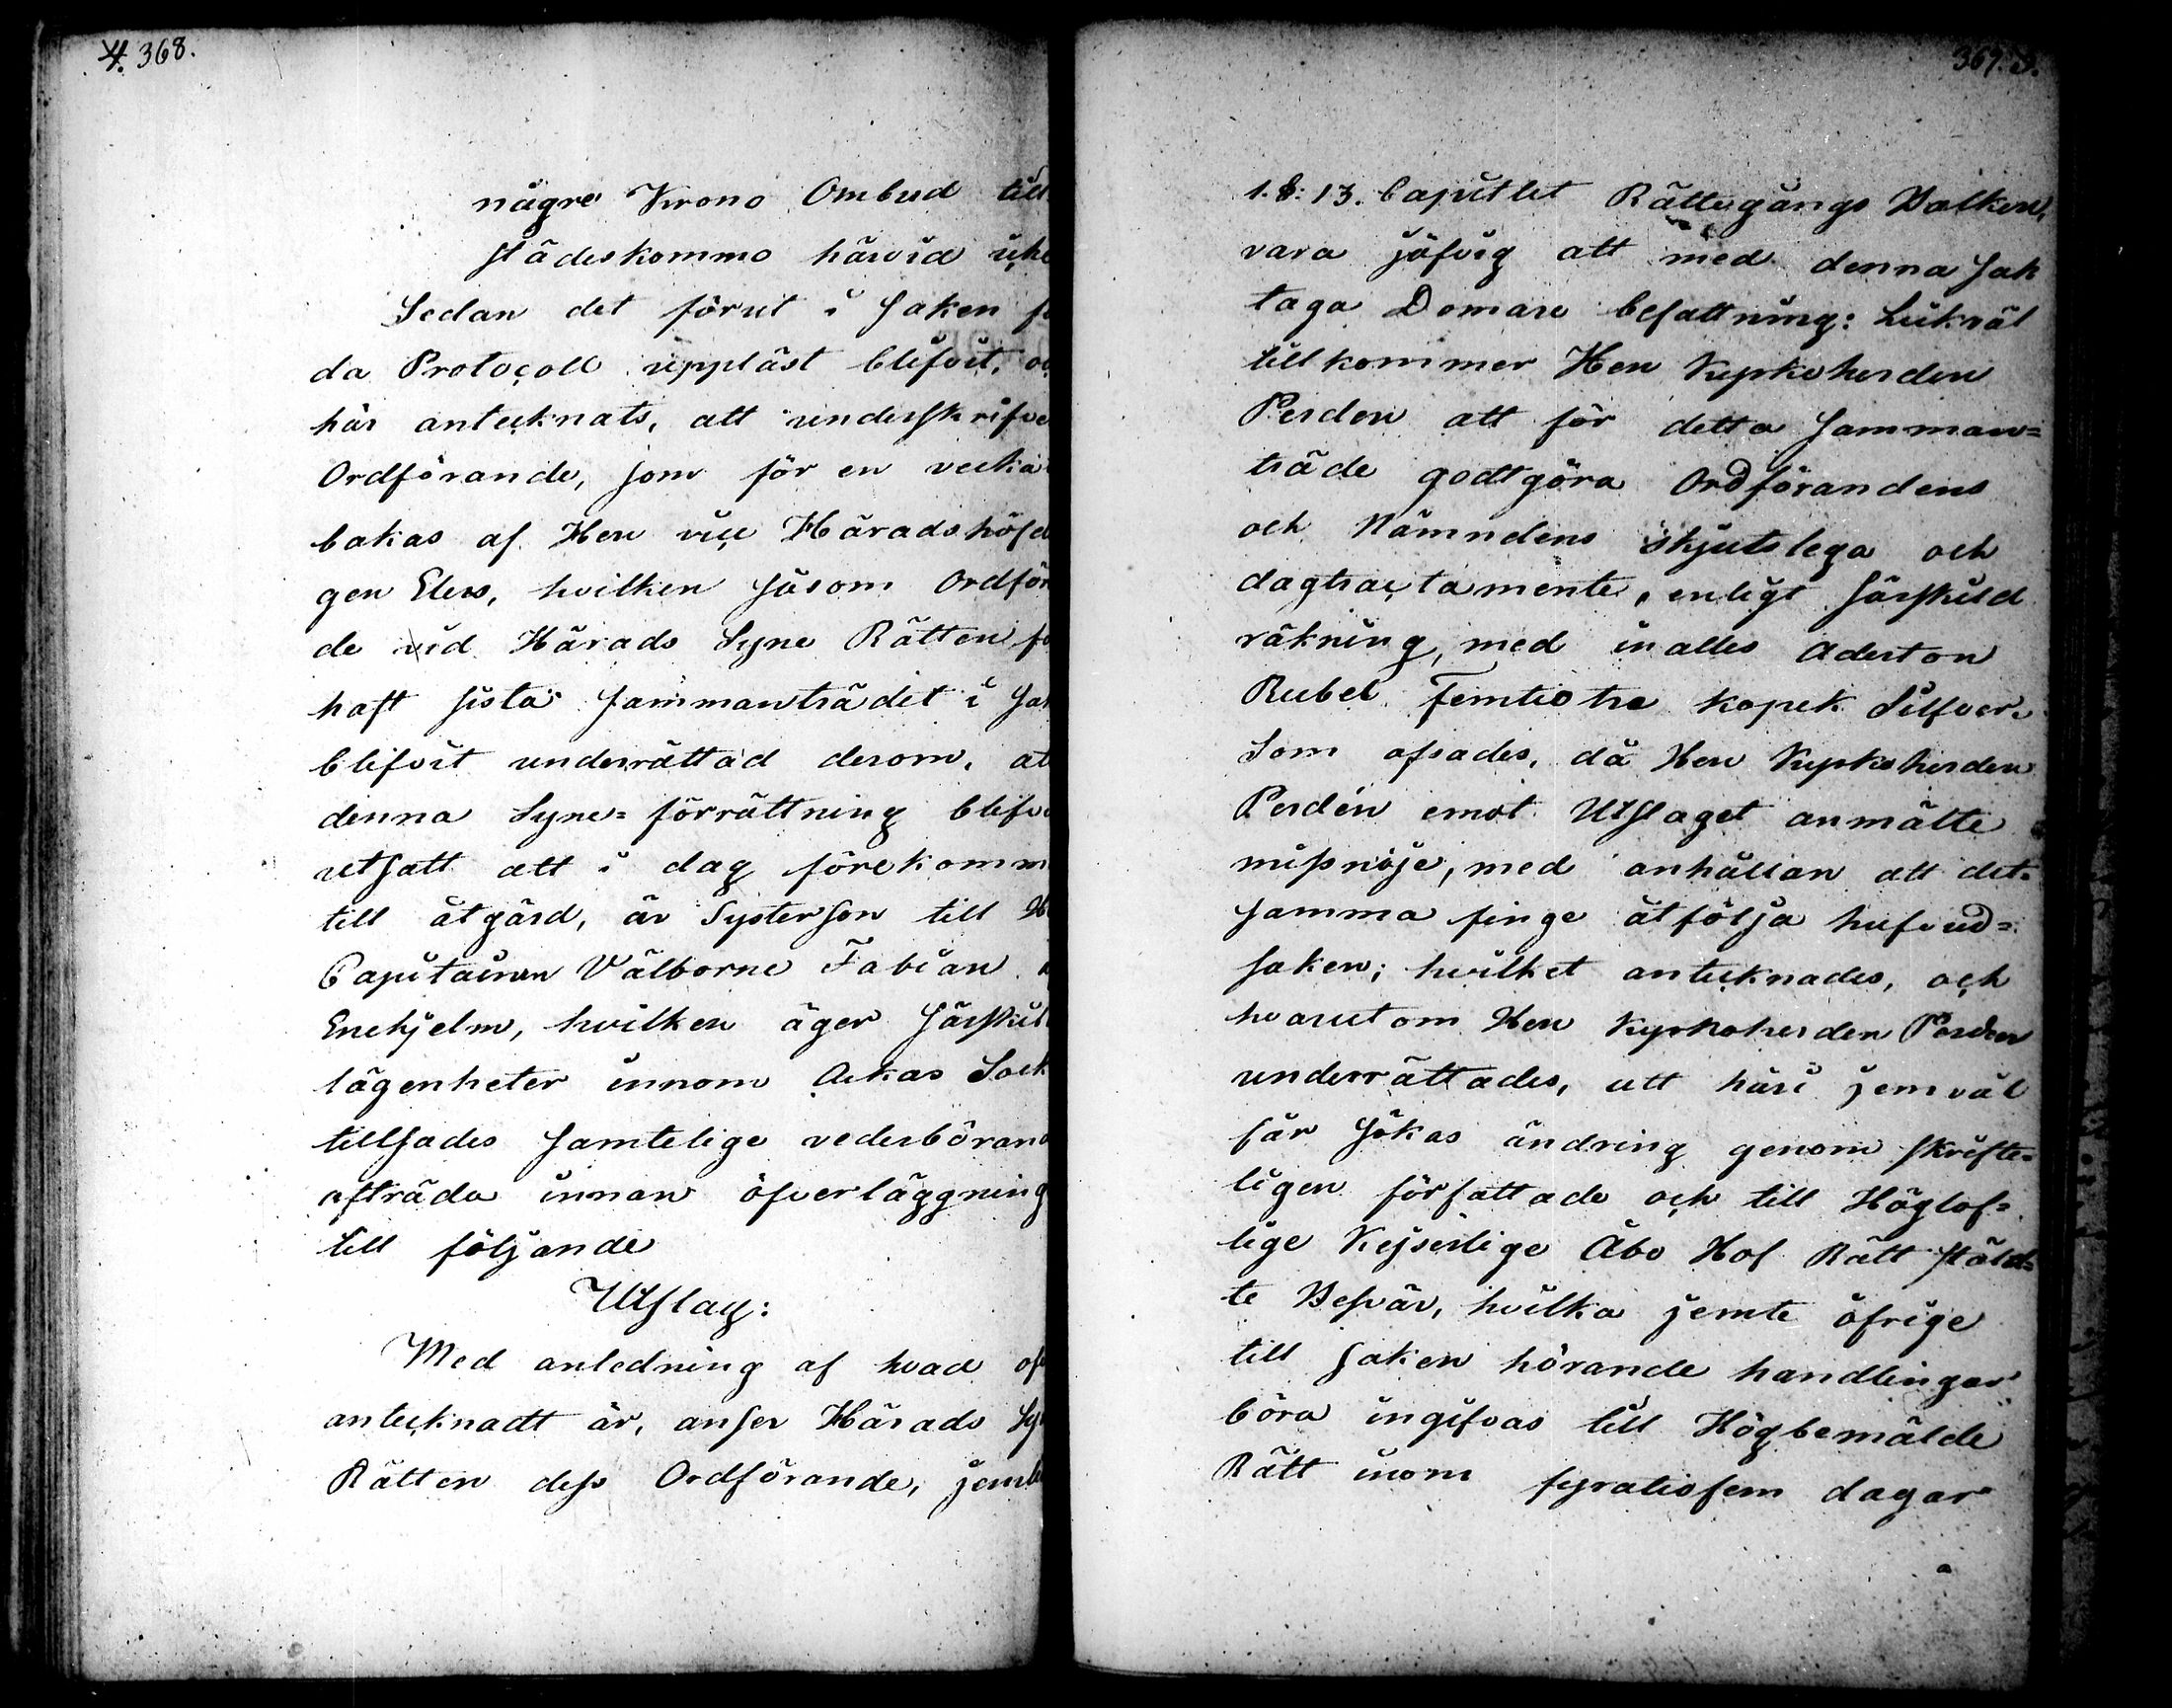 4. 368.
någre Krono Ombud till
städeskommo härvid icke
Sedan det förut i saken f
da Protocoll uppläst blifvit, oc
här antecknats, att underskrifve
Ordförande, som för en vecka
bakas af Herr vice Häradshöfd
gen Elers, hvilken såsom Ordför
de vid Härads Syne Rätten f
haft sista sammanträdet i sak
blifvit underrättad derom, at
denna Syne=förrättning blifvi
utsatt att i dag förekomm
till åtgärd, är Systerson till H
Capitainen Välborne Fabian
Enehjelm, hvilken äger särskil
lägenheter innom Ackas Sock
tillsades samtelige vederböran
afträda innan öfverläggning
till följande
Utslag:
Med anledning af hvad of
antecknadt är, anser Härads Sy
Rätten dess Ordförande, jeml
367. 5.
1. §: 13. Capitlet Rättegångs Balken,
vara jäfvig att med denna sak
taga Domare befattning: Likväl
tillkommer Herr Kyrkoherden
Perden att för detta samman=
träde godtgöra Ordförandens
och Nämndens skjutslega och
dagtractamente, enligt särskild
räkning, med inalles Aderton
Rubel Femtiotre kopek Silfver.
Som afsades, då Herr Kyrkoherden
Perdén emot Utslaget anmälte
missnöje, med anhållan att det=
samma finge åtfölja hufvud=
saken; hvilket antecknades, och
hvarutom Herr Kyrkoherden Perden
underrättades, att häri jemväl
får sökas ändring genom skrifte=
ligen författade och till Höglof=
lige Kejserlige Åbo Hof Rätt stäld=
te Besvär, hvilka jemte öfrige
till saken hörande handlingar
böra ingifvas till Högbemälde
Rätt inom fyratiofem dagar